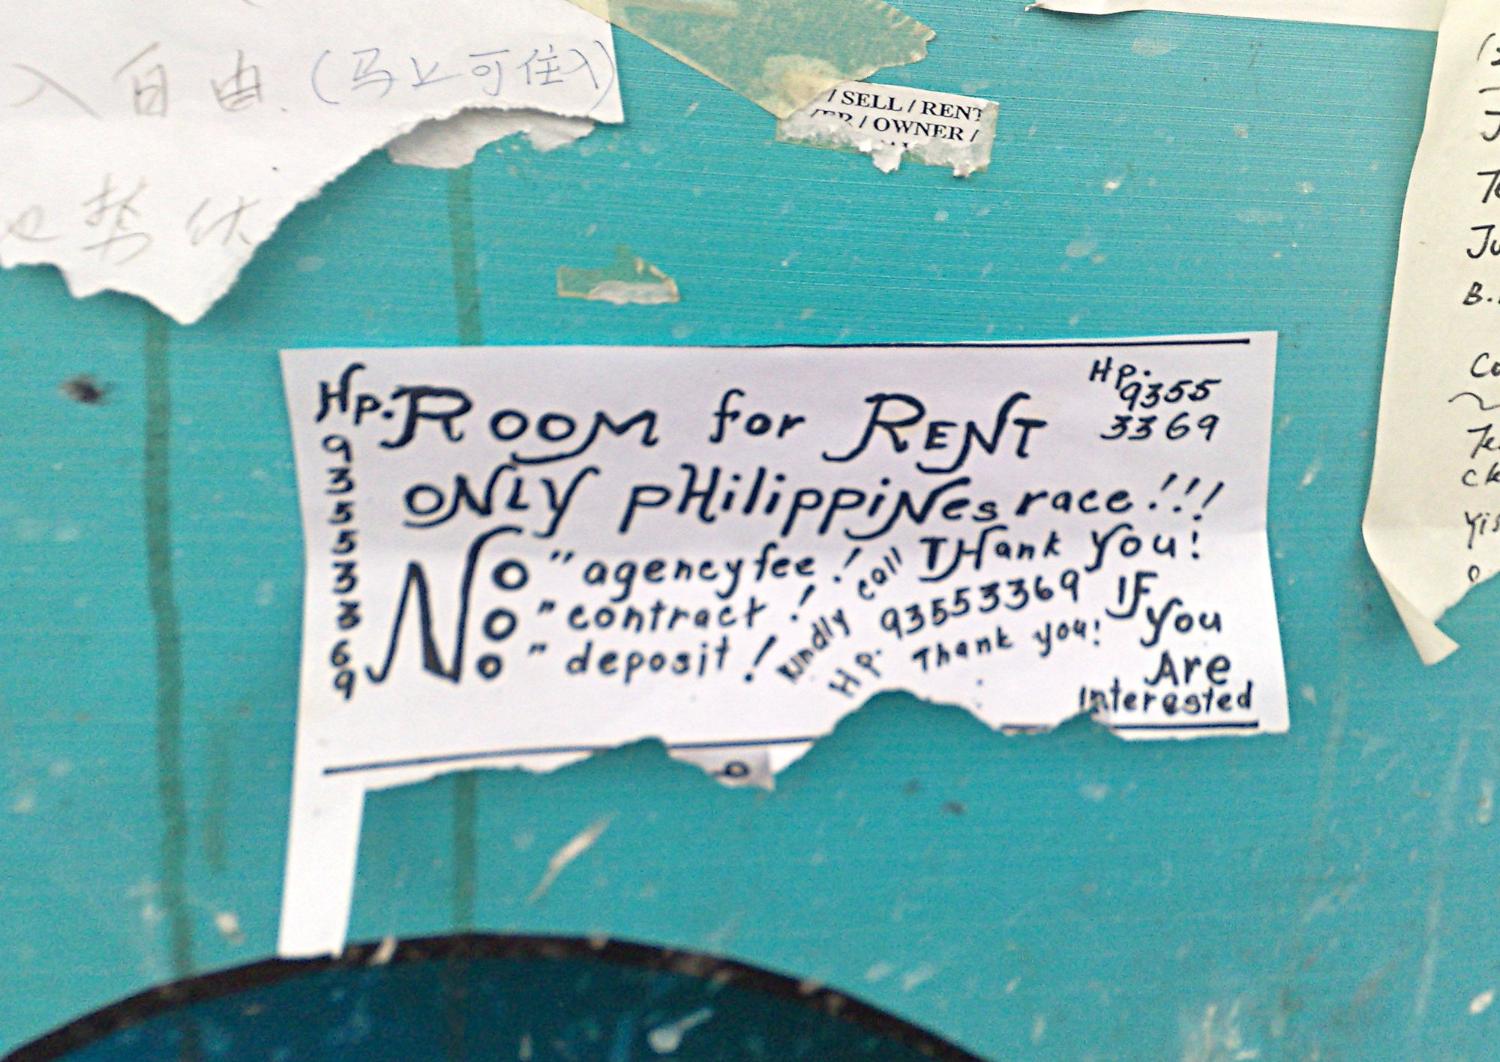 入自由.(马上可住入)
势伏
/ SELL / RENT
/ OWNER /
Hp. ROOM for RENT
Hp. 9355
3369
93553369
ONLY pHilippiNes race!!!
No "agencyfee! THank You!
o "contract!
o "deposit!
kindly call
Hp. 93553369
Thank you!
IF
You
Are
interested
B.